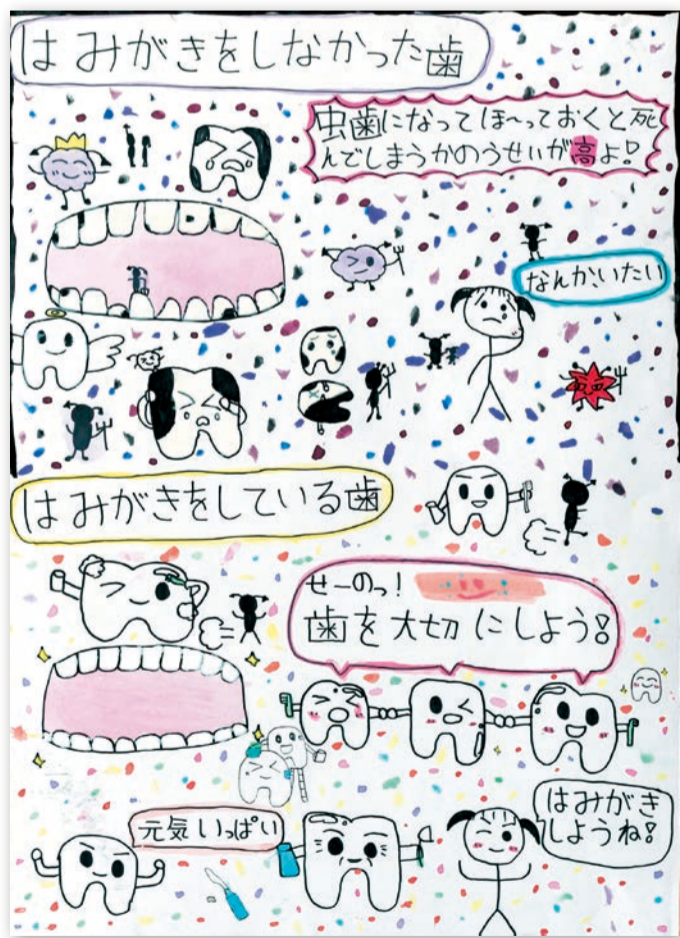 はみがきをしなかった歯
虫歯になってほ〜っておくと死
んでしまうかのうせいが高よ!
なんか、いたい
はみがきをしている歯
せーのっ!
歯を大切にしよう!
元気いっぱい
はみがき
しようね!